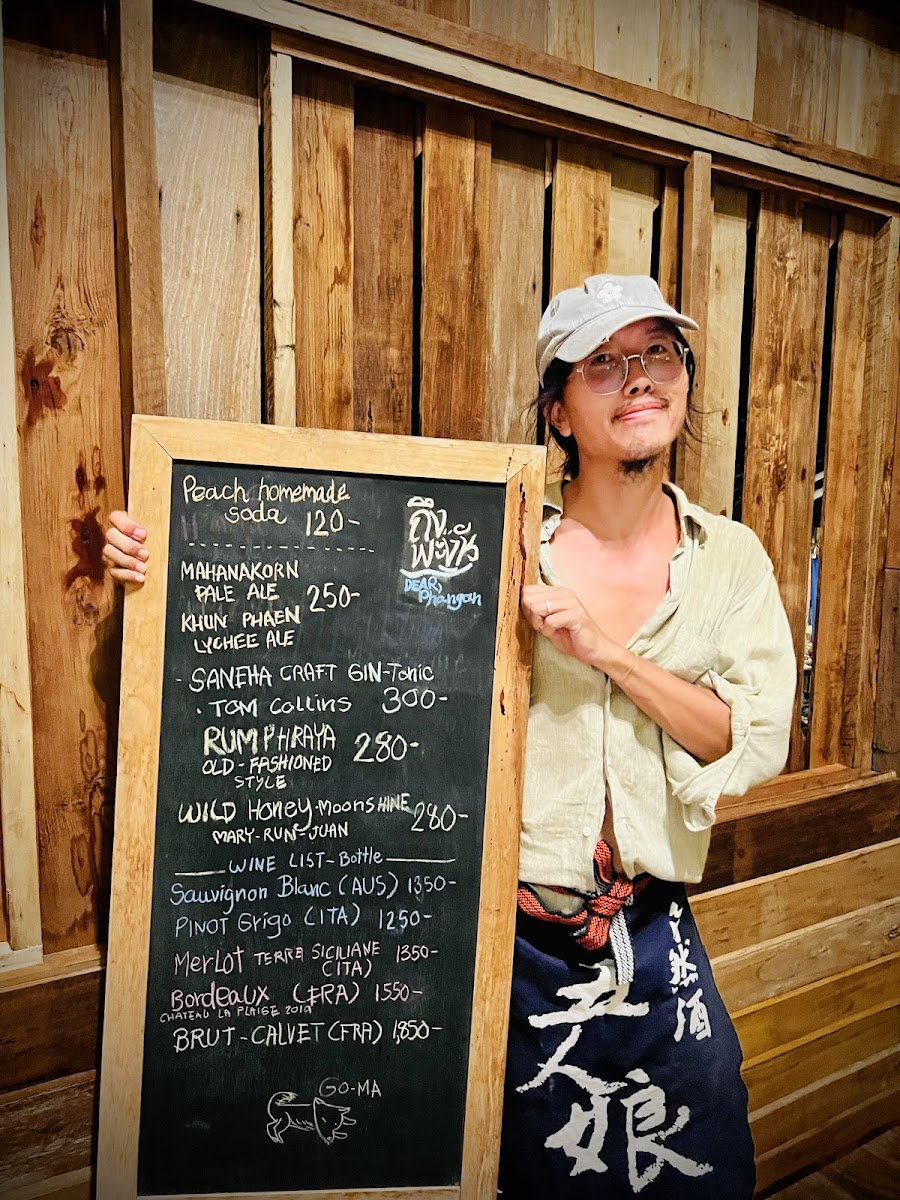 Peach homemade
soda 120-
ถึง
พะงัน
DEAR,
Phangan
MAHANAKORN
PALE ALE
250-
KHUN PHAEN
LYCHEE ALE
- SANEHA CRAFT GIN-Tonic
· TOM Collins 300-
RUM PHRAYA 280-
OLD-FASHIONED
STYLE
WILD Honey-MoonSHINE 280-
MARY-RUN-JUAN
WINE LIST-Bottle
Sauvignon Blanc (AUS) 1350-
PINOT GriGo (ITA) 1250-
MerLoT TERRE SICILIANE 1350-
(ITA)
Bordeaux (FRA) 1550-
CHATEAU LA PLAISE 2019
BRUT-CALVET (FRA) 1,850-
GO-MA
然酒
娘